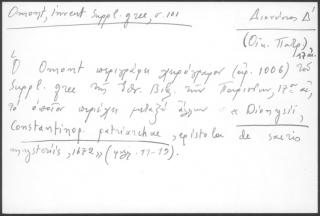 Omont, invent. suppl. grec, σ. 101
Διονύσιος Δ'
(Οἰκ. Πατρ)
Ὁ Omont περιγράφει χειρόγραφον (ἀρ. 1006) τοῦ
Suppl. grec τῆς Ἐθν. Βιβ. τῶν Παρισίων, 17ου αἰ,
τὸ ὁποῖον περιέχει μεταξὺ ἄλλων « Dionysii,
Constantinop. patriarchae, epistola de sacris
mysteriis, 1672 » (φφ. 11-19).